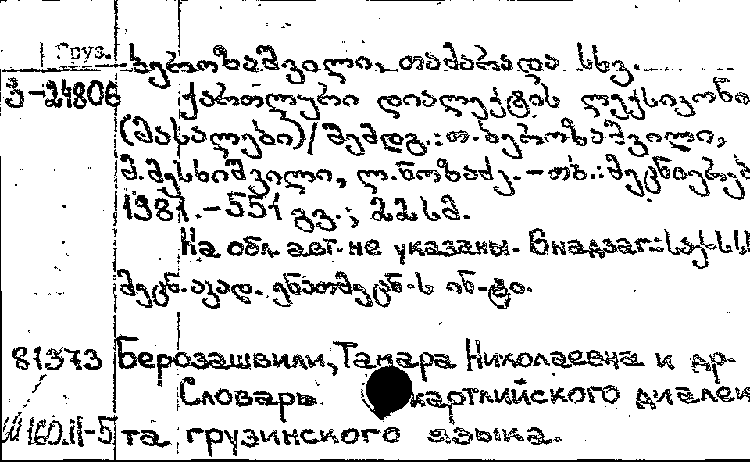 Груз.
ბეროზაშვილი, თამარა და სხვ.
პ-24806 ქართლური დიალექტის ლექსიკონი
(მასალები)/შემდგ.: თ. ბეროზაშვილი,
მ. მესხიშვილი, ლ. ნოზაძე. – თბ.: მეცნიერებ
1981. – 551 გვ.; 22 სმ.
На обл. авт. не указаны. В надзаг.: საქ. სსრ
მეცნ. აკად. ენათმეცნ-ს ინ-ტი.
81373 Берозашвили, Тамара Николаевна и др.
Словарь картлийского диалек
Ш160.11-5 та грузинского языка.